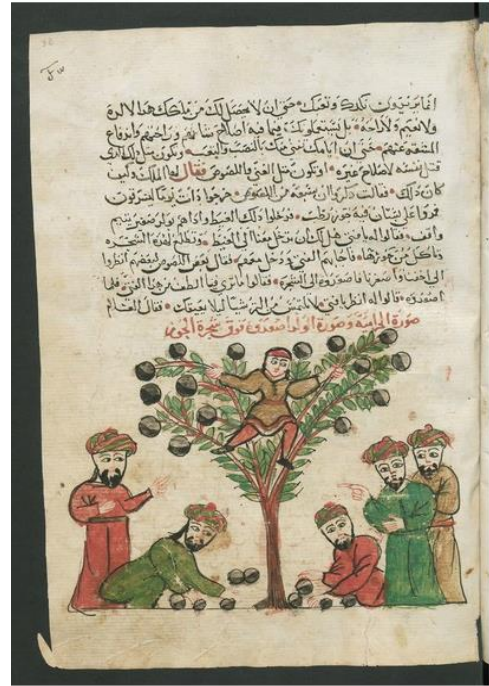 انما يريدون نكدك وتعبك • حتى ان لا يحصل لك من ملكك هذا لا لذة
ولا نعيم ولا راحة • بل فيما فيه اصلاح شانهم وراحتهم واندفاع
المشقة عنهم • حتى ان ايامك عنك بالنصب والتعب • وتكون مثل الذي
قتل نفسه لاصلاح غيره • او تكون مثل الفتى واللصوص فقال لها الملك وكيف
كان ذلك • فقالت ذكروا ان سبعة من اللصوص خرجوا ذات يوما ليسرقون
فمروا على بستان فيه جوز رطب • فدخلوا ذلك الغيط واذا هم بولد صغير يتيم
واقف • فقالوا له يا فتى هل لك ان تدخل معنا الى الغيط • وتطلع لهذه الشجره
وتاكل من جوزها • فاجابهم الفتى ودخل معهم • فقال بعض اللصوص لبعضهم انظروا
الى اخفنا واصغرنا فاصعدوه الى الشجرة • فقالوا ما نرى فينا الطف من هذا الفتى • فلما
اصعدوه • قالوا له انظر يا فتى • لا تلمس من شيا ليلا • فقال الغلام
صورة الحرامية وصورة الولد اصعدوه فوق شجرة الجوز